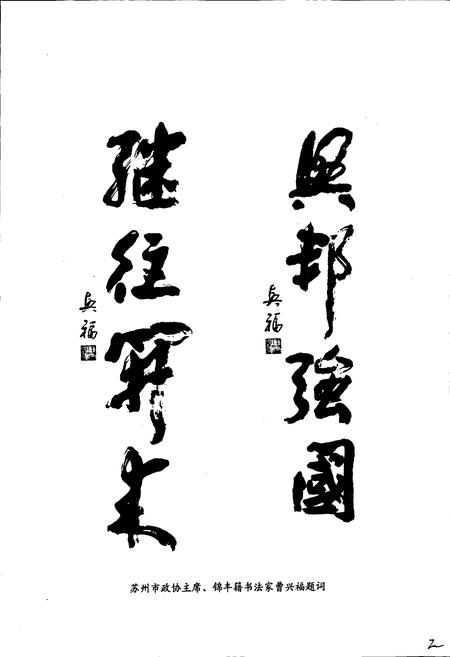 興邦強國
興福
继往開来
興福
苏州市政协主席、锦丰籍书法家曹兴福题词
2